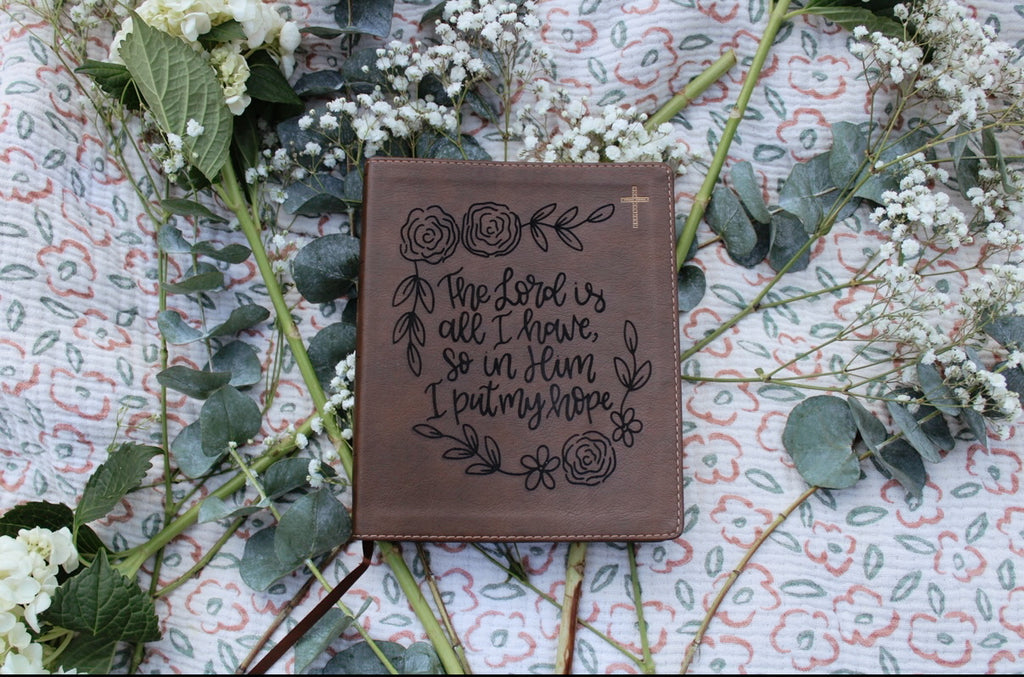 The Lord is
all I have,
so in Him
I put my hope